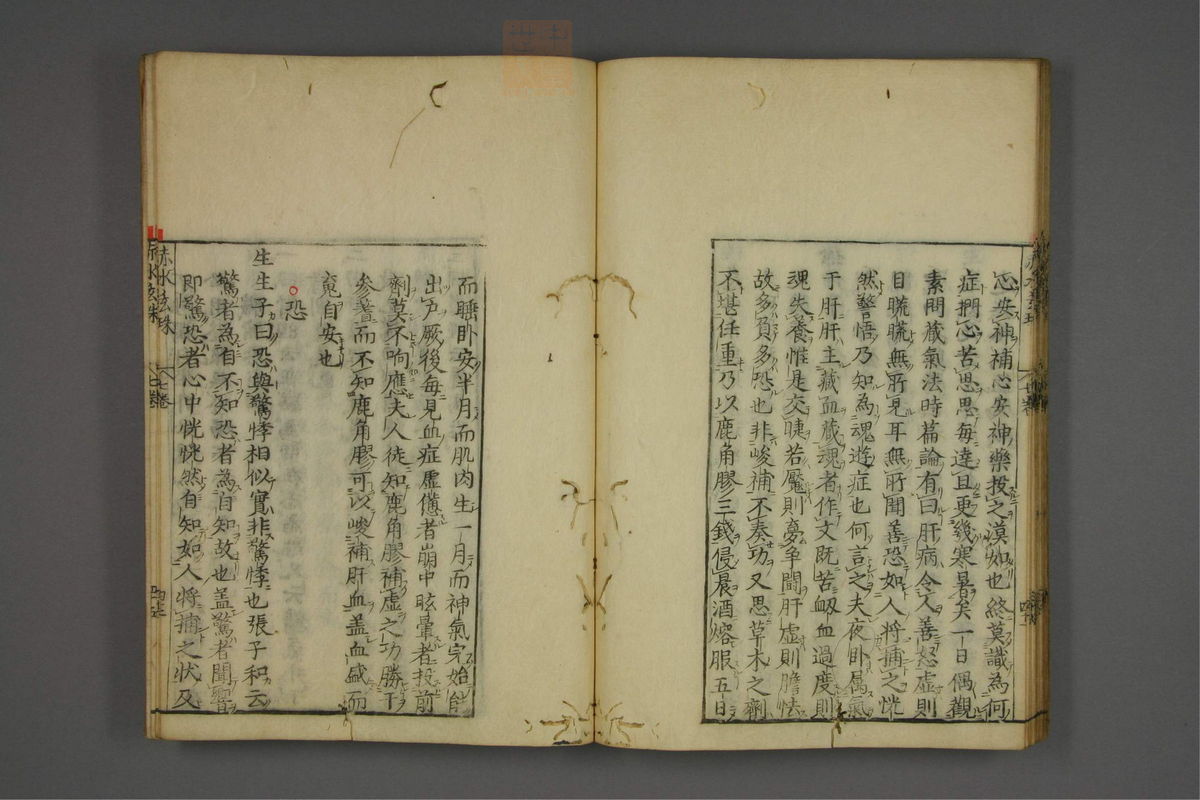 心安神補心安神藥投之漠如也終莫識為何
症捫心苦思思每達旦更幾寒暑矣一日偶觀
素問藏氣法時篇論有曰肝病令人善怒虛則
目䀮䀮無所見耳無所聞善恐如人將捕之恍
然警悟乃知為魂遊症也何言之夫夜卧属氣
于肝肝主藏血藏魂者作文既苦衂血過度則
魂失養惟是交睫若魘則夢爭鬪肝虛則膽怯
故多負多恐也非峻補不奏功又思草木之劑
不堪任重乃以鹿角膠三錢侵晨酒熔服五日
而睡卧安半月而肌肉生一月而神氣完始能
出戶厥後每見血症虛憊者崩中眩暈者投前
劑莫不响應夫人徒知鹿角膠補虛之功勝于
參蓍而不知鹿角膠可以峻補肝血盖血盛而
竟自安也
恐
生生子曰恐與驚悸相似實非驚悸也張子和云
驚者為自不知恐者為自知故也盖驚者聞響
即驚恐者心中恍恍然自知如人將捕之狀及
赤水玄珠
七卷